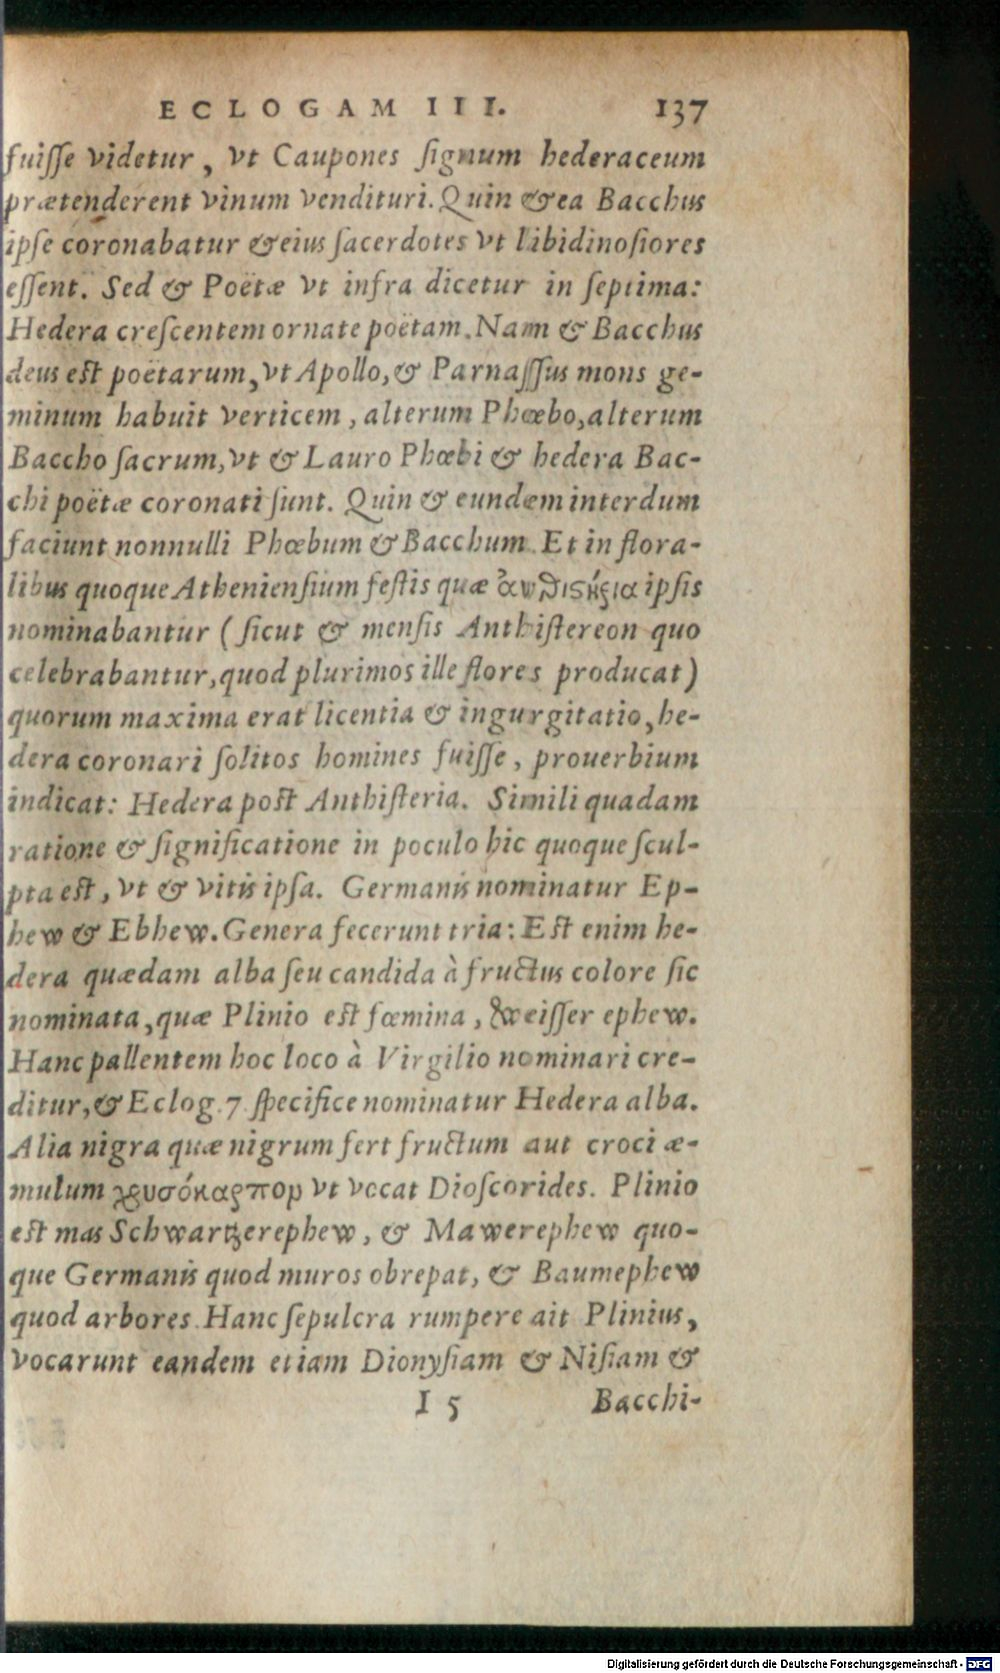 ECLOGAM III. 137
fuiſſe videtur, vt Caupones ſignum hederaceum
prætenderent vinum vendituri. Quin & ea Bacchus
ipſe coronabatur & eius ſacerdotes vt libidinoſiores
eſſent. Sed & Poëtæ vt infra dicetur in ſeptima:
Hedera creſcentem ornate poëtam. Nam & Bacchus
deus eſt poëtarum, vt Apollo, & Parnaſſus mons ge-
minum habuit verticem, alterum Phœbo, alterum
Baccho ſacrum, vt & Lauro Phœbi & hedera Bac-
chi poëtæ coronati ſunt. Quin & eundem interdum
faciunt nonnulli Phœbum & Bacchum. Et in flora-
libus quoque Athenienſium feſtis quæ ipſis
nominabantur (ſicut & menſis Anthiſtereon quo
celebrabantur, quod plurimos ille flores producat)
quorum maxima erat licentia & ingurgitatio, he-
dera coronari ſolitos homines fuiſſe, prouerbium
indicat: Hedera poſt Anthiſteria. Simili quadam
ratione & ſignificatione in poculo hic quoque ſcul-
pta eſt, vt & vitis ipſa. Germanis nominatur Ep-
hew & Ebhew. Genera fecerunt tria: Eſt enim he-
dera quædam alba ſeu candida à fructus colore ſic
nominata, quæ Plinio eſt fœmina, Weiſſer ephew.
Hanc pallentem hoc loco à Virgilio nominari cre-
ditur, & Eclog. 7 ſpecifice nominatur Hedera alba.
Alia nigra quæ nigrum fert fructum aut croci æ-
mulum χρυσόκαρπον vt vocat Dioſcorides. Plinio
eſt mas Schwartzerephew, & Mawerephew quo-
que Germanis quod muros obrepat, & Baumephew
quod arbores. Hanc ſepulcra rumpere ait Plinius,
vocarunt eandem etiam Dionyſiam & Niſiam &
I 5 Bacchi-
Digitalisierung gefördert durch die Deutsche Forschungsgemeinschaft - DFG